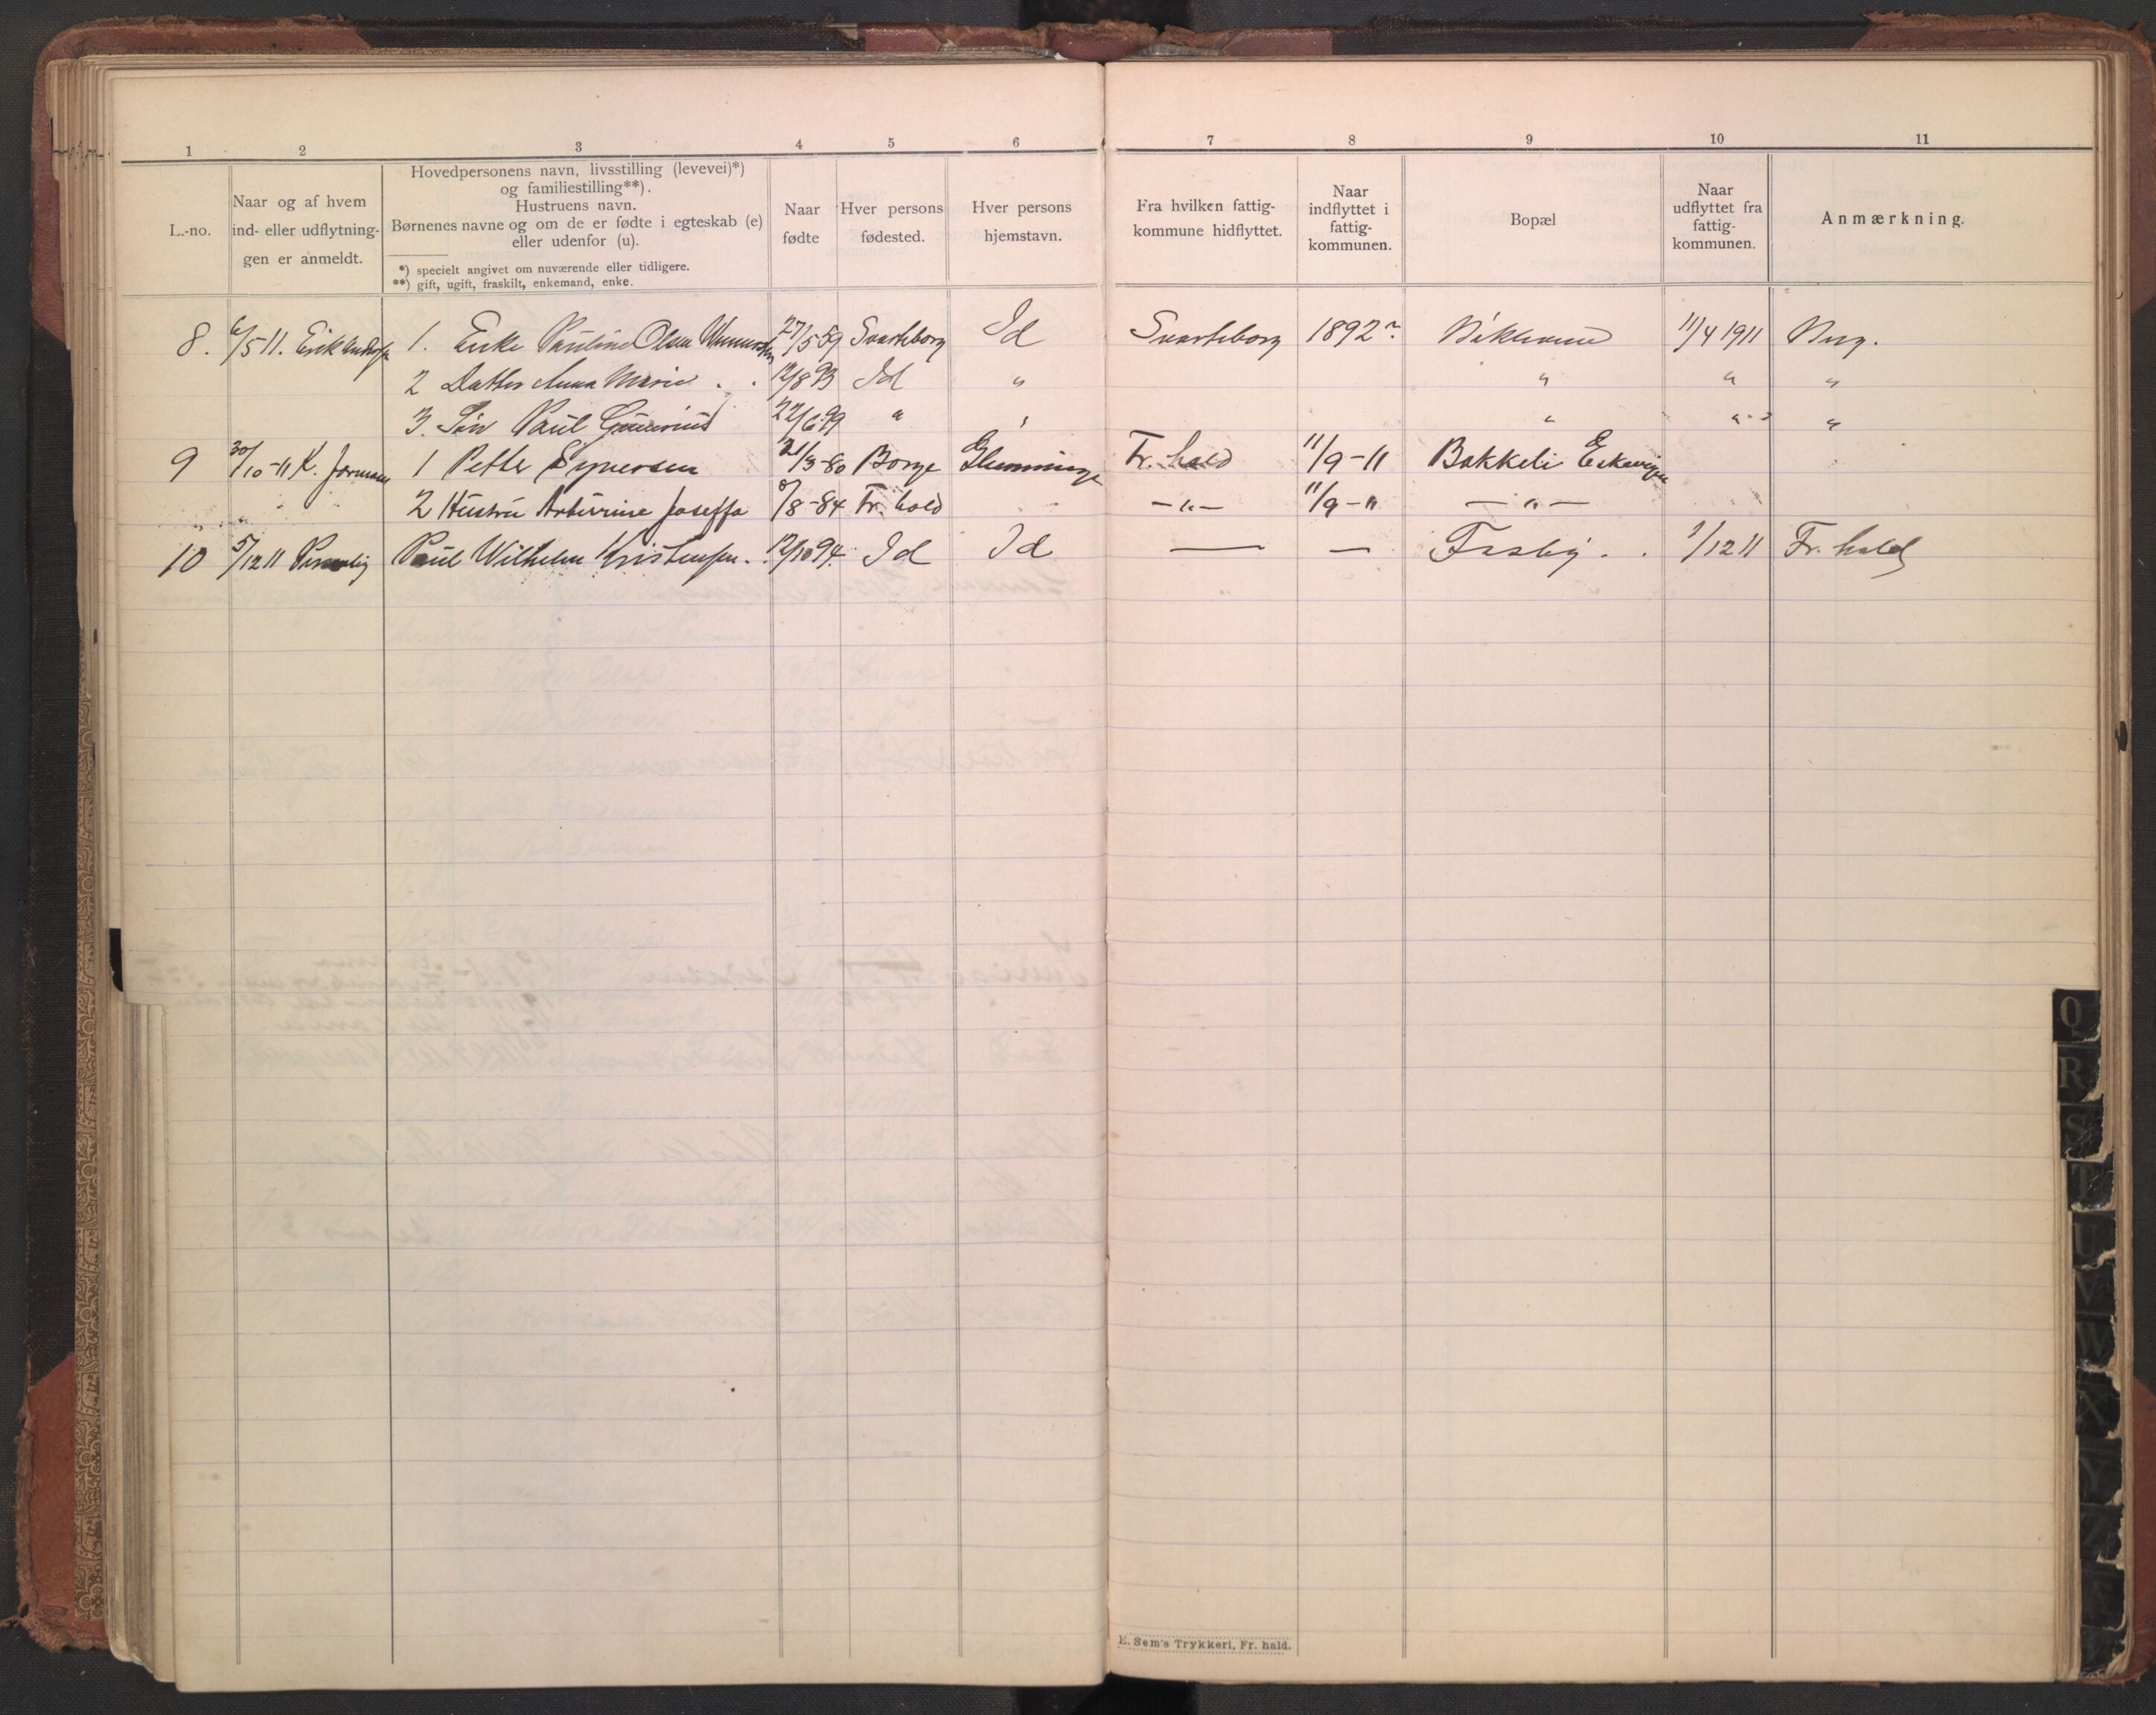 1 2 3 4 5 6 7 8 9 10 11
L.-no.
Naar og af hvem
ind- eller udflytnin-
gen er anmeldt.
Hovedpersonens navn, livsstilling (levevei)*)
og familiestilling**).
Hustruens navn.
Børnenes navne og om de er fødte i egteskab (e)
eller udenfor (u).
*) specielt angivet om nuværende eller tidligere.
**) gift, ugift, fraskilt, enkemand, enke.
Naar
fødte
Hver persons
fødested.
Hver persons
hjemstavn.
Fra hvilken fattig-
kommune hidflyttet.
Naar
indflyttet i
fattig-
kommunen.
Bopæl
Naar
udflyttet fra
fattig-
kommunen.
Anmærkning.
8. 6/5 11. Erik 1. Enke Pauline Olsen 27/5 59 Svarteborg Id Svarteborg 1892 11/4 1911
2 Datter Anna Marie 12/8 93 Id " " " "
3. Søn Paul 22/6 99 " " " " "
9 30/10-11 K. 1 Petter 21/3-80 Borge Glemminge Fr. hald 11/9-11 Bakkeli
2 Hustru Josefa /8-84 Fr. hald -"- 11/9-11 -"-
10 5/12 11 Personlig Paul Wilhelm Kristensen. 12/10 94. Id Id — — 1/12 11 Fr. hald
E. Sem's Trykkeri, Fr. hald.
Q
R
S
T
U
V
W
X
Y
Z